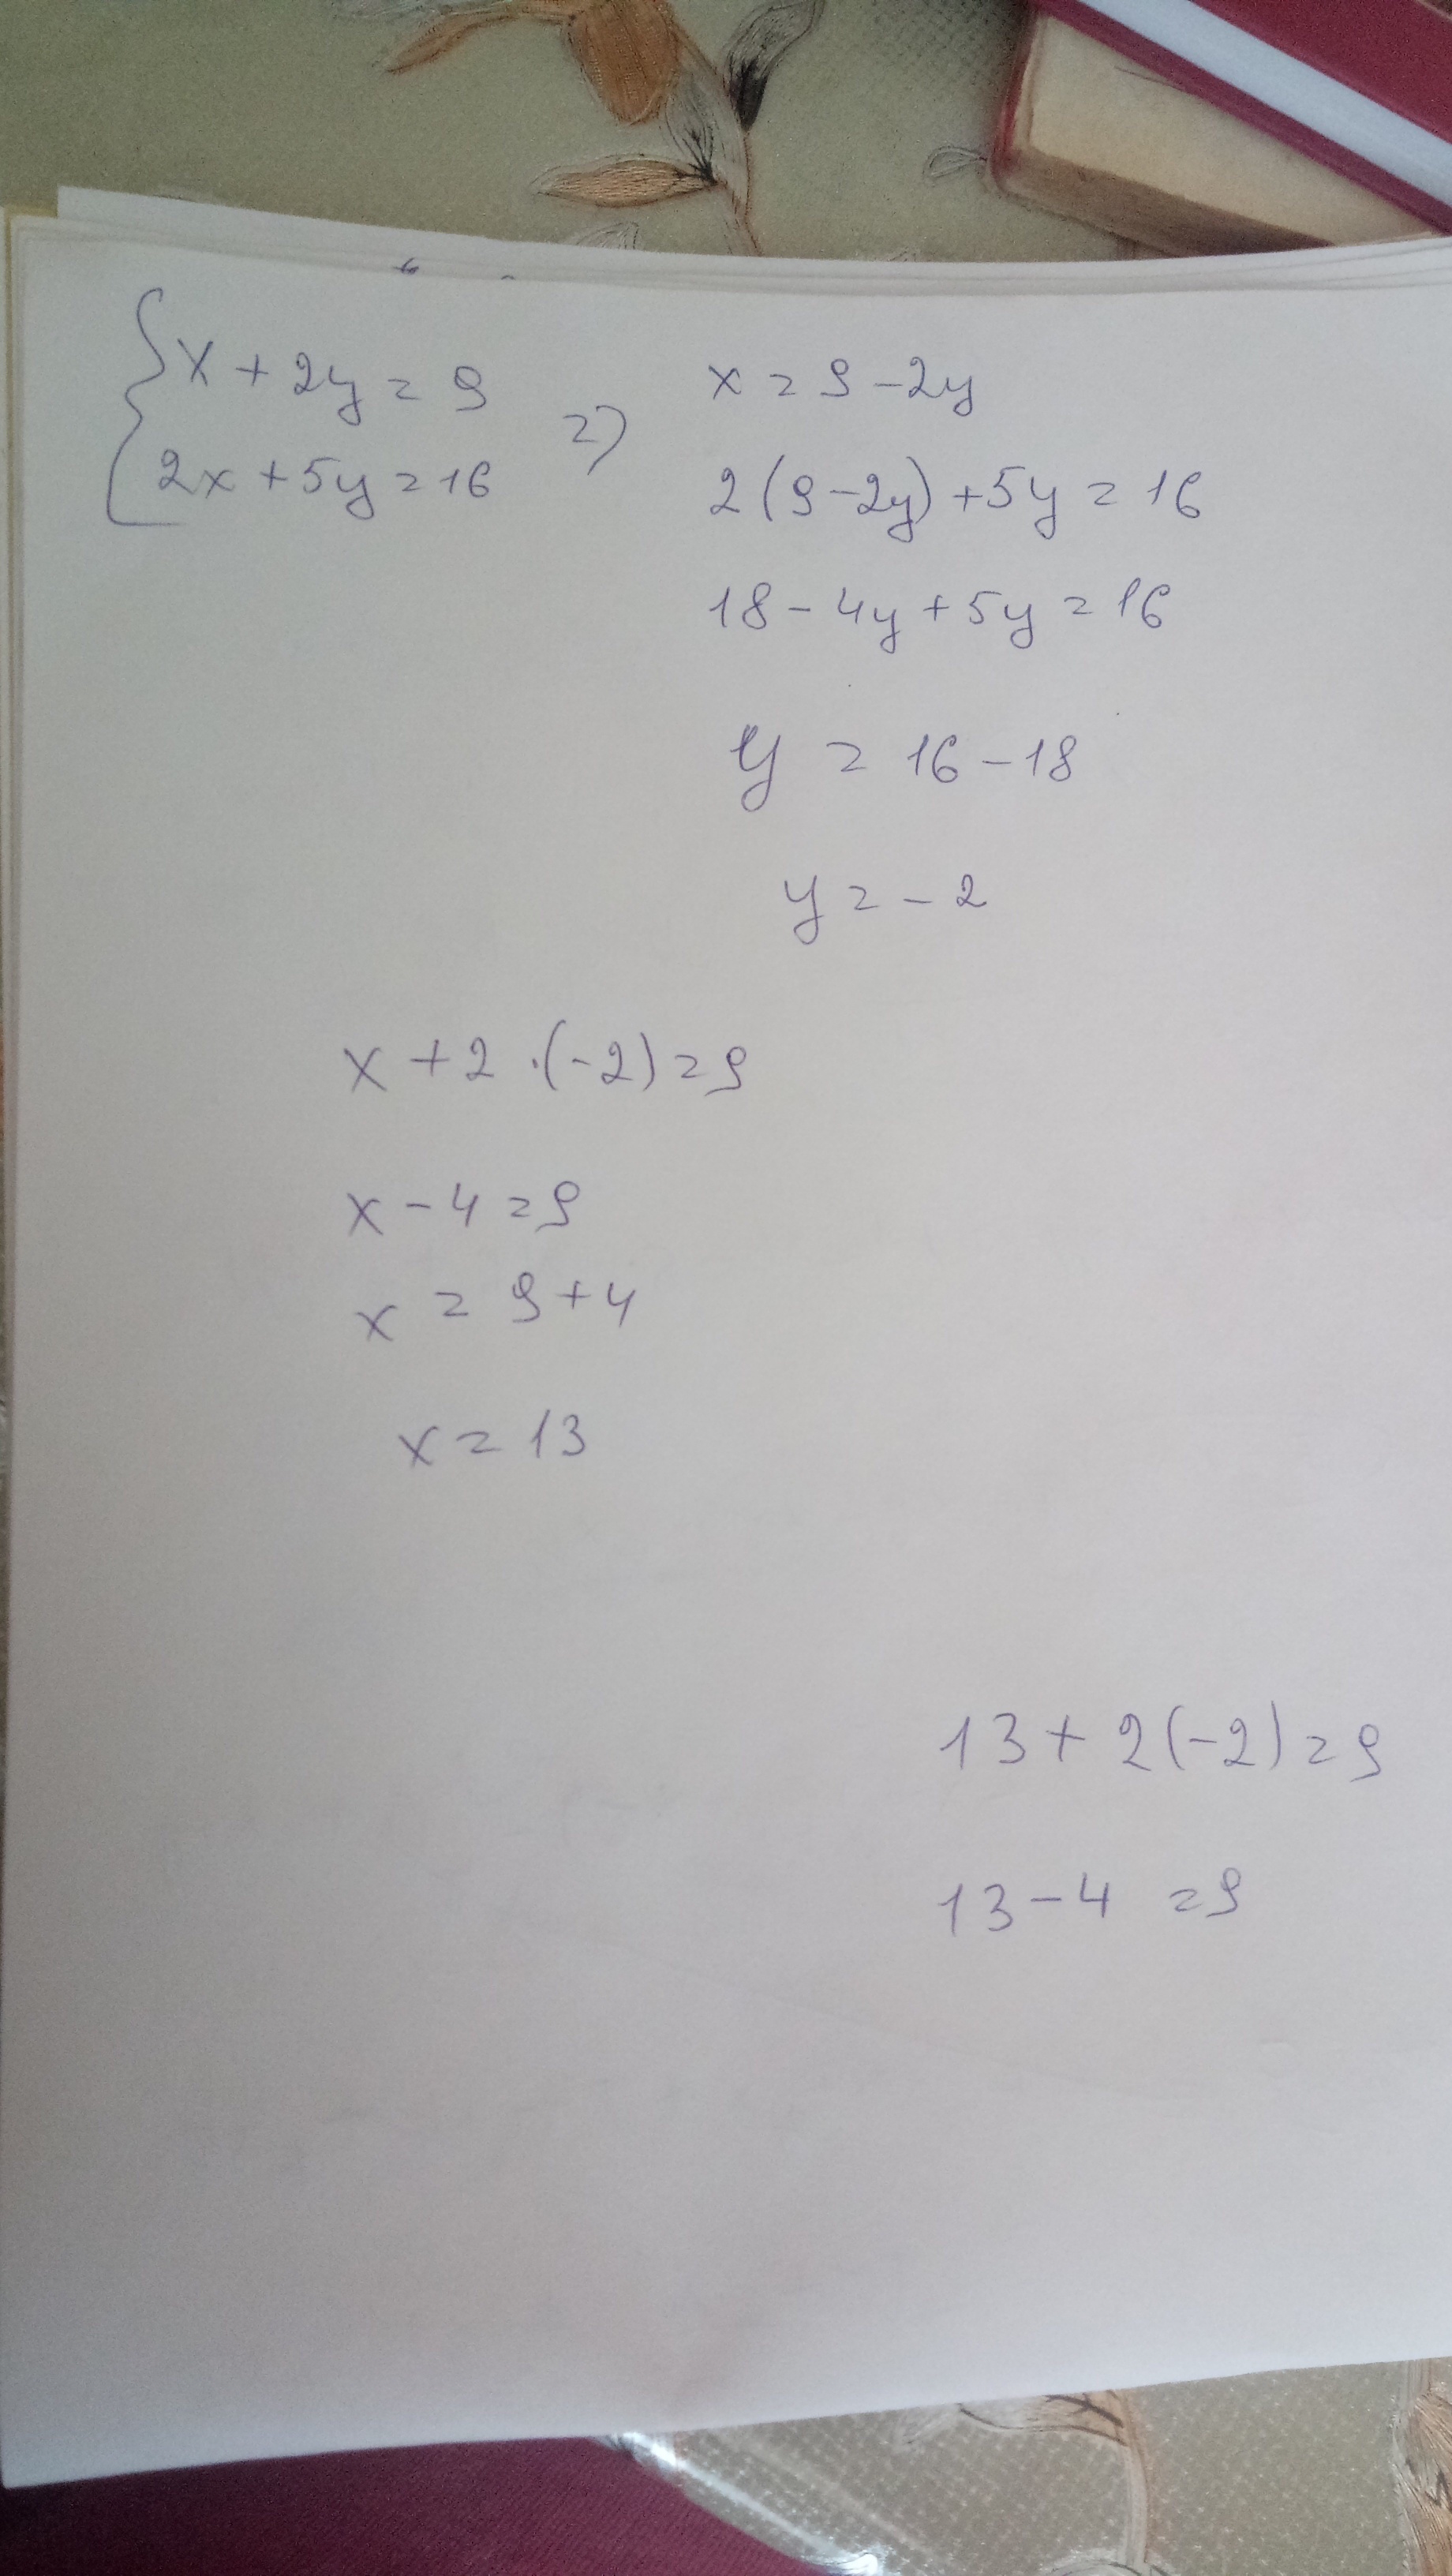 {x + 2y = 9
2x + 5y = 16
=>
x = 9 - 2y
2(9 - 2y) + 5y = 16
18 - 4y + 5y = 16
y = 16 - 18
y = - 2
x + 2 · (-2) = 9
x - 4 = 9
x = 9 + 4
x = 13
13 + 2(-2) = 9
13 - 4 = 9